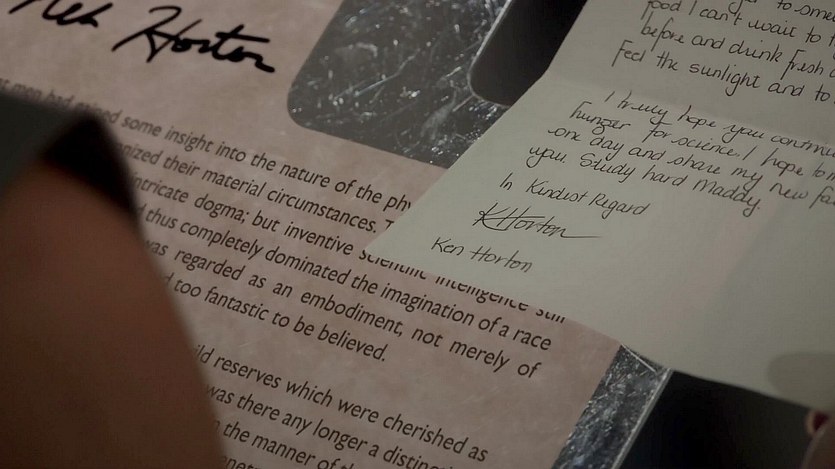 Horton
men had gained some insight into the nature of the
their material circumstances.
intricate dogma; but inventive scientific intelligence still
thus completely dominated the imagination of a race
was regarded as an embodiment, not merely of
too fantastic to be believed.
reserves which were cherished as
was there any longer a
the manner of
food I can't wait to
before and drink fresh
Feel the sunlight and to
I truly hope you
hunger for science. I hope to
one day and share my new
you. Study hard Maddy.
In Kindest Regard
KHorton
Ken Horton